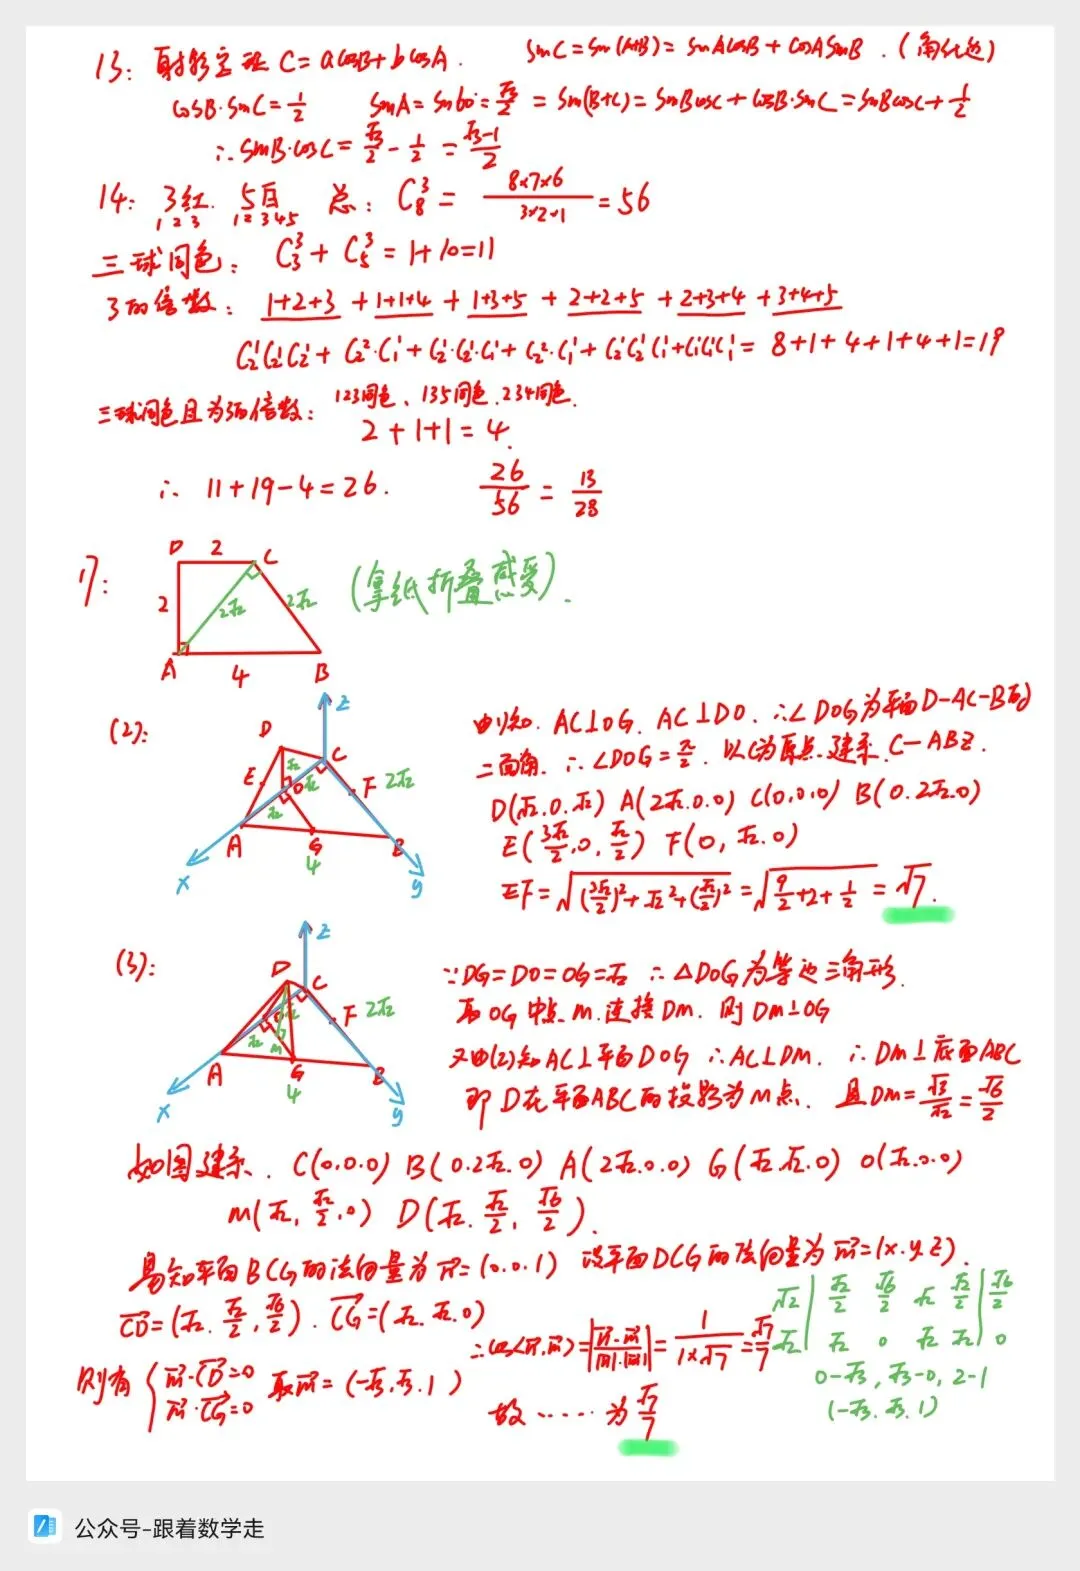 13: 射影定理 C=acosB+bcosA. sinC=sin(A+B)=sinAcosB+cosAsinB.(角化边)
cosB·sinC=1/2 sinA=sin60°=√3/2=sin(B+C)=sinBcosC+cosB·sinC=sinBcosC+1/2
∴sinB·cosC=√3/2-1/2=(√3-1)/2
14: 3红. 5白 总: C₈³=(8×7×6)/(3×2×1)=56
1 2 3 1 2 3 4 5
三球同色: C₃³+C₅³=1+10=11
3的倍数: 1+2+3 +1+1+4 +1+3+5 +2+2+5 +2+3+4 +3+4+5
C₂¹C₂¹C₂¹+C₂²·C₁¹+C₂¹·C₂¹·C₁¹+C₂²·C₁¹+C₂¹C₂¹C₁¹+C₂¹C₁¹C₁¹=8+1+4+1+4+1=19
三球同色且为3的倍数: 123同色、135同色、234同色.
2+1+1=4.
∴ 11+19-4=26. 26/56=13/28
17: D 2 C
2 2√2 2√2 (拿纸折叠感受).
A 4 B
(2): 由(1)知. AC⊥OG、AC⊥DO. ∴∠DOG为平面D-AC-B的
二面角. ∴∠DOG=π/2. 以C为原点.建系.C-ABZ.
D(√2.0.√2) A(2√2.0.0) C(0.0.0) B(0.2√2.0)
E(3√2/2,0,√2/2) F(0,√2.0)
EF=√((3√2/2)²+√2²+(√2/2)²)=√(9/2+2+1/2)=√7.
z D C E O F 2√2 √2 √2 √2 A G B 4 x y
(3): ∵DG=DO=OG=√2 ∴△DOG为等边三角形.
取OG中点M.连接DM. 则DM⊥OG
又由(2)知AC⊥平面DOG ∴AC⊥DM. ∴DM⊥底面ABC
即D在平面ABC的投影为M点. 且DM=√3/√2=√6/2
z D C O F 2√2 √2 √2 M A G B 4 x y
如图建系. C(0.0.0) B(0.2√2.0) A(2√2.0.0) G(√2.√2.0) O(√2.0.0)
M(√2,√2/2.0) D(√2.√2/2,√6/2).
易知平面BCG的法向量为n=(0.0.1) 设平面DCG的法向量为m=(x.y.z).
CD=(√2.√2/2,√6/2). CG=(√2.√2.0)
则有{m·CD=0 m·CG=0 取m=(-√3.√3.1)
∴cos<n,m>=|n·m/|n|·|m||=1/(1×√7)=√7/7
√2 | √2/2 √6/2 √2 √2/2 | √6/2
√2 | √2 0 √2 √2 | 0
0-√3, √3-0, 2-1
(-√3.√3.1)
故……为√7/7
公众号-跟着数学走